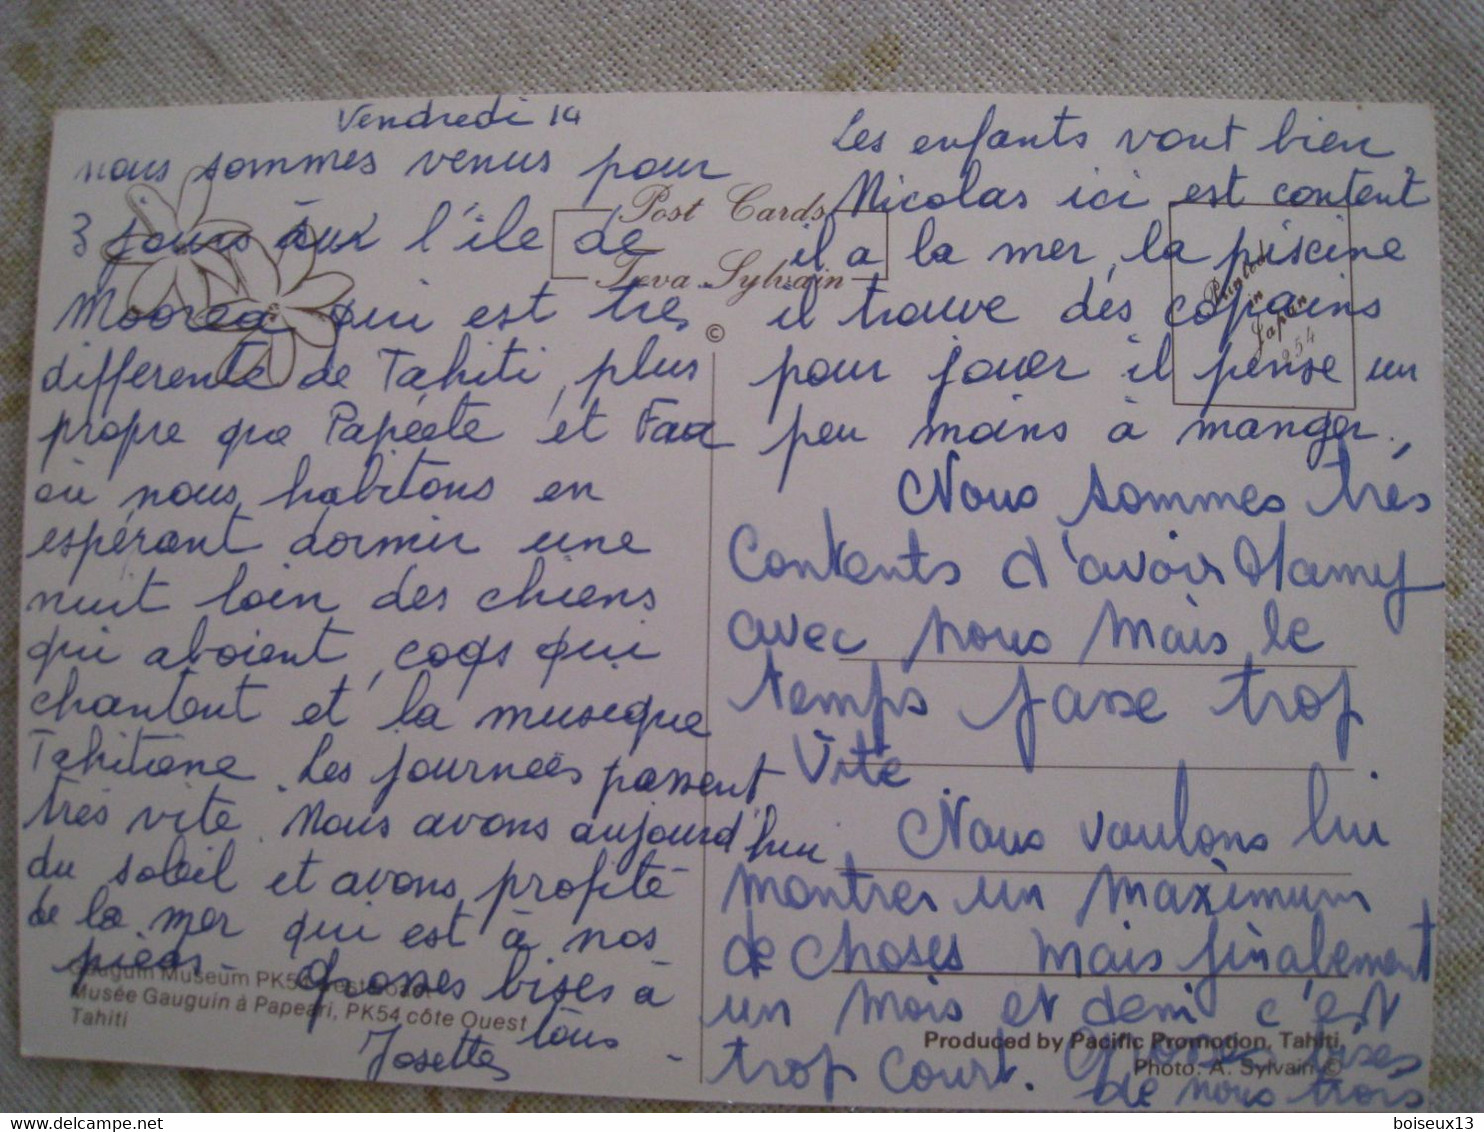 Vendredi 14
nous sommes venus pour
3 jours sur l'île de
Moorea qui est très
differente de Tahiti, plus
propre que Papéete et Faa
où nous habitons en
espérant dormir une
nuit loin des chiens
qui aboient, coqs qui
chantent et la musique
Tahitiene. Les journées passent
très vite. Nous avons aujourd'hui
du soleil et avons profité
de la mer qui est à nos
pieds - Grosses bises à
tous -
Josette
Gauguin Museum PK54 West
Musée Gauguin à Papeari, PK54 côte Ouest
Tahiti
Post Cards
Teva Sylvain
©
Les enfants vont bien
Nicolas ici est content
il a la mer, la piscine
il trouve des copains
pour jouer il pense un
peu moins à manger.
Printed
in
Japan
254
Nous sommes très
Contents d'avoir Mamy
avec nous mais le
temps passe trop
vite
Nous voulons lui
montrer un maximum
de choses mais finalement
un mois et demi c'est
trop court. Grosses bises
de nous trois
Produced by Pacific Promotion, Tahiti,
Photo: A. Sylvain ©
boiseux13